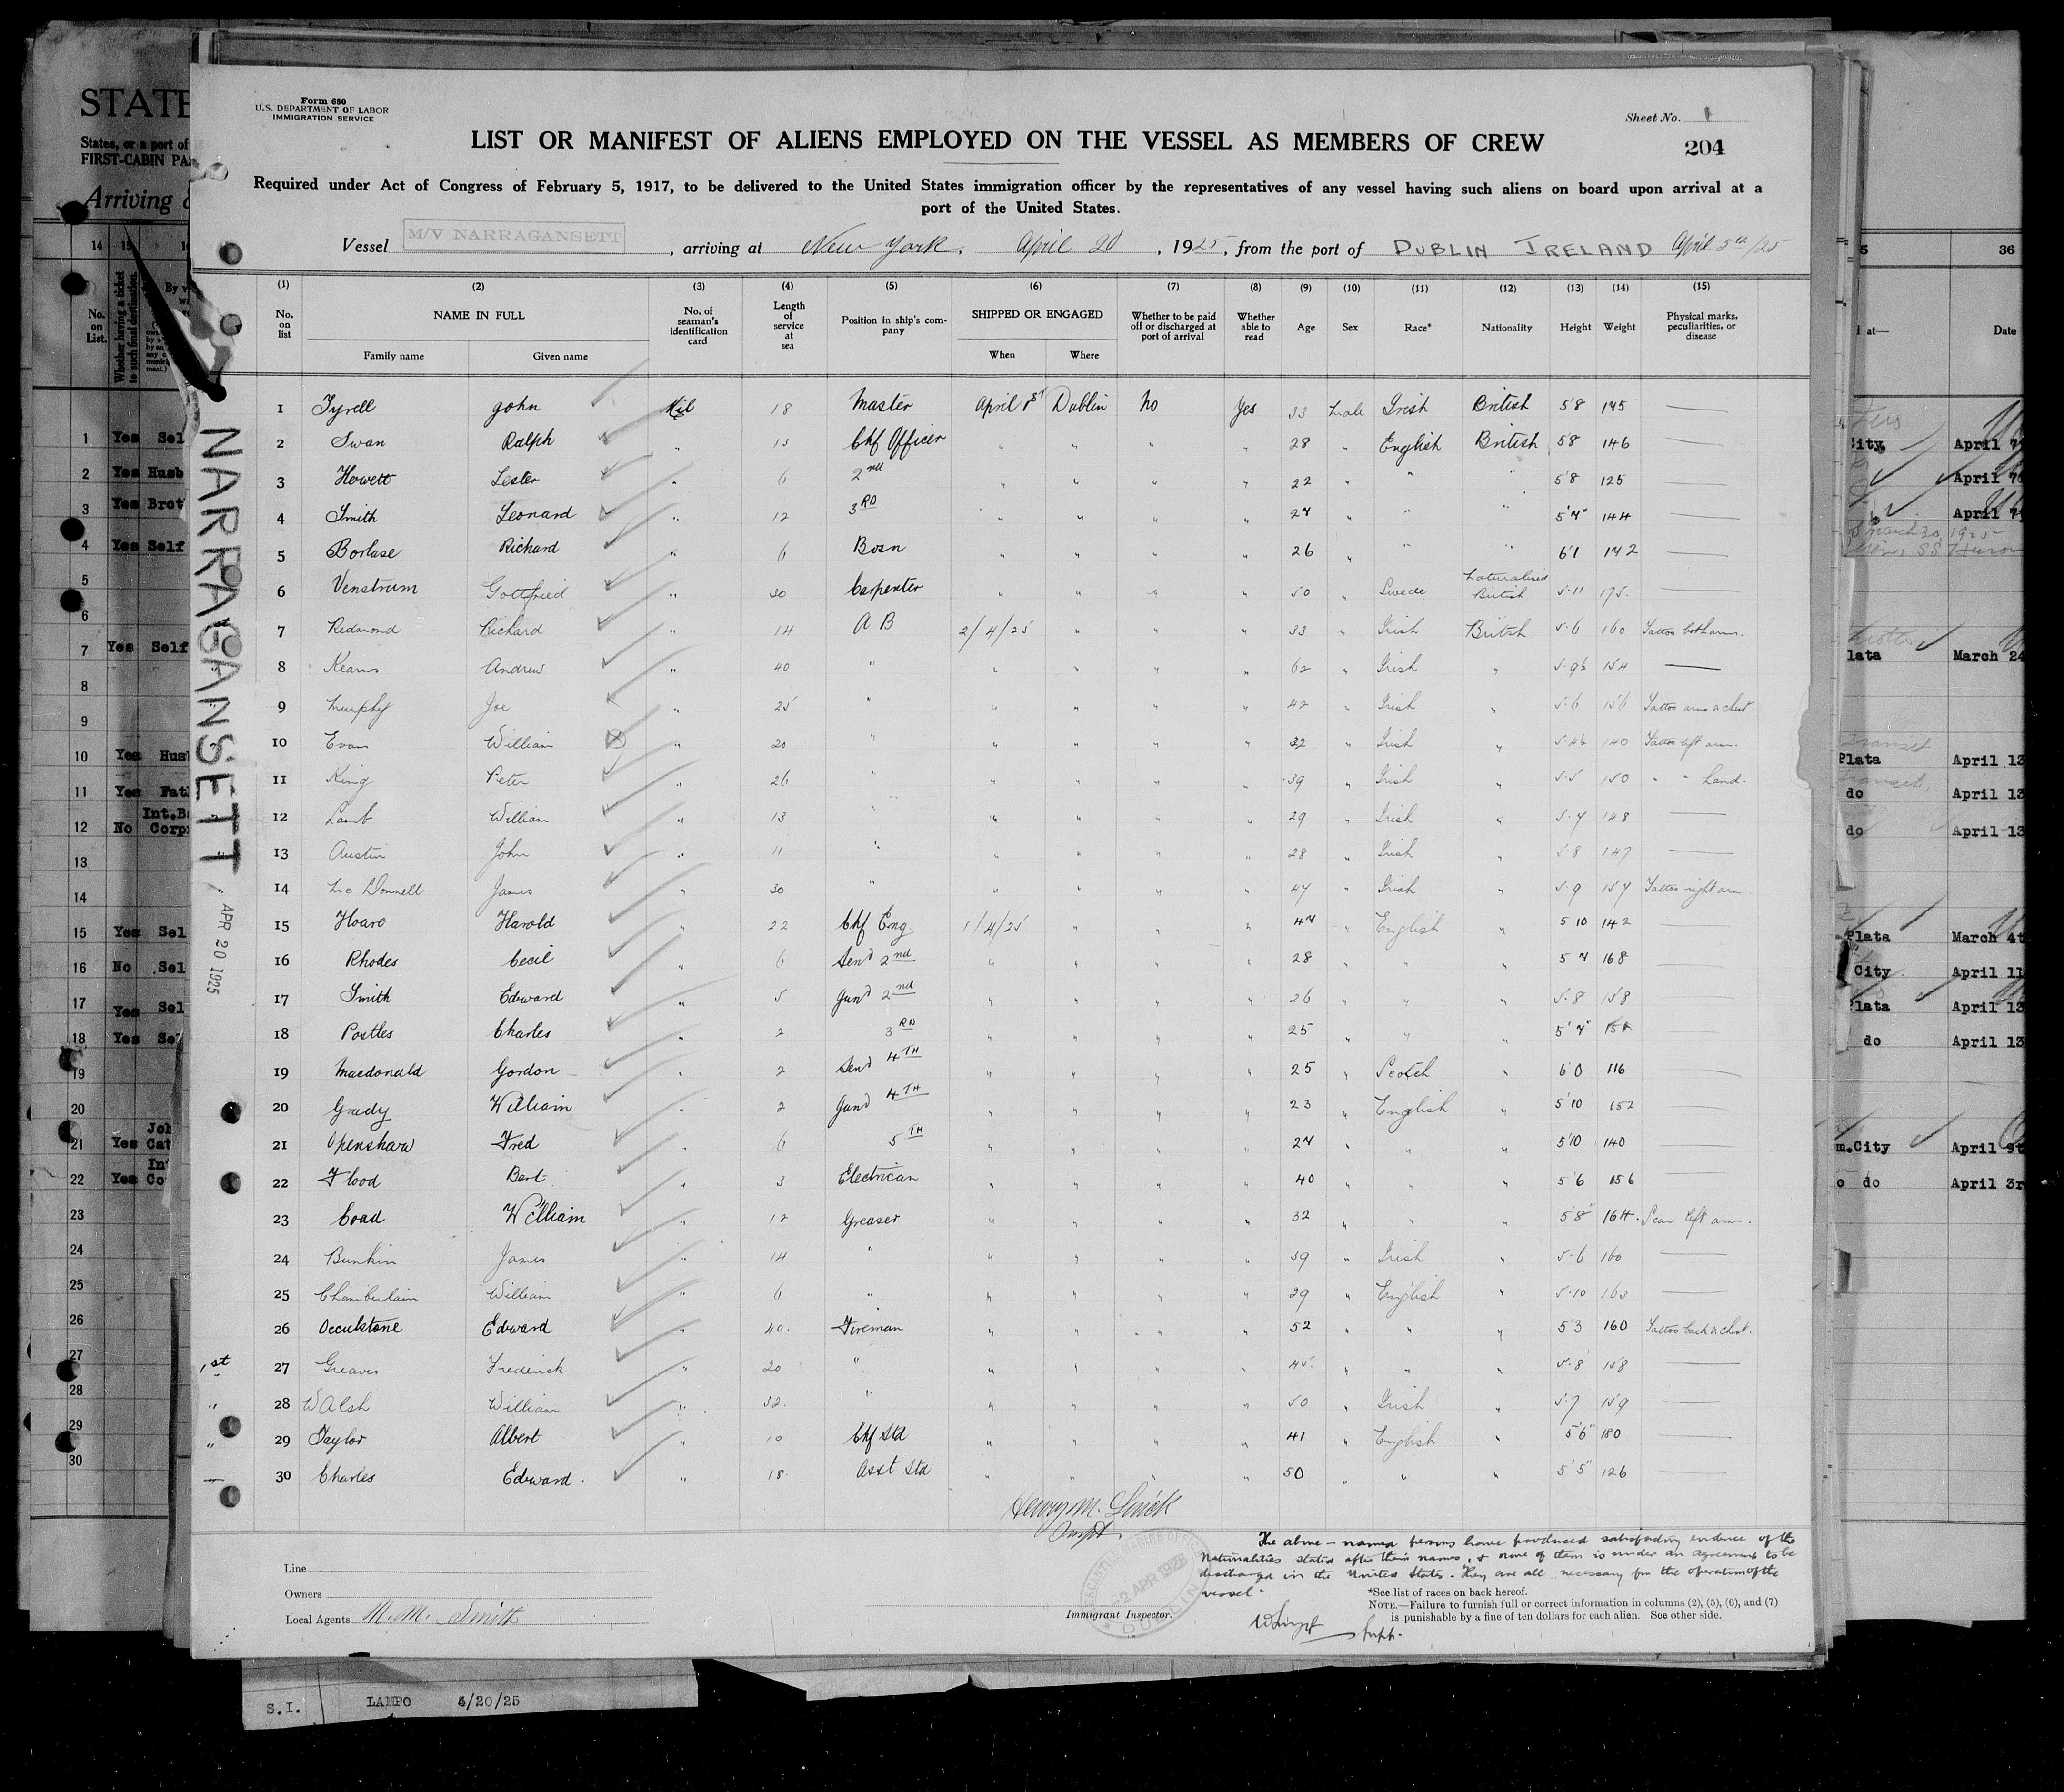 Form 680
U.S. DEPARTMENT OF LABOR
IMMIGRATION SERVICE
Sheet No. 1
LIST OR MANIFEST OF ALIENS EMPLOYED ON THE VESSEL AS MEMBERS OF CREW
204
Required under Act of Congress of February 5, 1917, to be delivered to the United States immigration officer by the representatives of any vessel having such aliens on board upon arrival at a
port of the United States.
Vessel M/V NARRAGANSETT, arriving at New York, April 20, 1925, from the port of DUBLIN IRELAND April 5th/25
(1) (2) (3) (4) (5) (6) (7) (8) (9) (10) (11) (12) (13) (14) (15)
No. on list NAME IN FULL No. of seaman's identification card Length of service at sea Position in ship's company SHIPPED OR ENGAGED Whether to be paid off or discharged at port of arrival Whether able to read Age Sex Race* Nationality Height Weight Physical marks, peculiarities, or disease
Family name Given name When Where
1 Tyrell John Nil 18 Master April 1st Dublin No Yes 33 Male Irish British 5'8 145 —
2 Swan Ralph " 13 Chf Officer " " " " 28 " English British 5'8 146 —
3 Howett Lester " 6 2nd " " " " 22 " " " 5'8 125 —
4 Smith Leonard " 12 3RD " " " " 27 " " " 5'7" 144 —
5 Borlase Richard " 6 Bosn " " " " 26 " " " 6'1 142 —
6 Venstrum Gottfried " 30 Carpenter " " " " 50 " Swede Naturalised British 5.11 175. —
7 Redmond Richard " 14 A B 2/4/25 " " " 33 " Irish British 5.6 160 Tattoo both arms.
8 Kearns Andrew " 40 " " " " " 62 " Irish " 5.9½ 154 —
9 Murphy Joe " 25 " " " " " 42 " Irish " 5.6 156 Tattoo arms & chest.
10 Evans William " 20 " " " " " 32 " Irish " 5.4½ 140 Tattoo left arm.
11 King Peter " 26 " " " " " 39 " Irish " 5.5 150 " " hand.
12 Lamb William " 13 " " " " " 29 " Irish " 5.7 148 —
13 Austin John " 11 " " " " " 28 " Irish " 5.8 147 —
14 Mc Donnell James " 30 " " " " " 47 " Irish " 5.9 157 Tattoo right arm.
15 Hoare Harold " 22 Chf Eng 1/4/25 " " " 47 " English " 5 10 142 —
16 Rhodes Cecil " 6 Senr 2nd " " " " 28 " " " 5 7 168 —
17 Smith Edward " 5 Junr 2nd " " " " 26 " " " 5.8 158 —
18 Postles Charles " 2 3RD " " " " 25 " " " 5'7" —
19 Macdonald Gordon " 2 Senr 4TH " " " " 25 " Scotch " 6'0 116 —
20 Grady William " 2 Junr 4TH " " " " 23 " English " 5'10 152 —
21 Openshaw Fred " 6 5TH " " " " 27 " " " 5'10 140 —
22 Flood Bert " 3 Electrican " " " " 40 " " " 5'6 156 —
23 Coad William " 12 Greaser " " " " 32 " " " 5'8" 164. Scar left arm.
24 Bunkin James " 14 " " " " " 39 " Irish " 5.6 160 —
25 Chamberlain William " 6 " " " " " 29 " English " 5.10 163 —
26 Occulstone Edward " 40. Fireman " " " " 52 " " " 5'3 160 Tattoo back & chest.
1st 27 Greaves Frederick " 20 " " " " " 45. " " " 5.8 158 —
" 28 Walsh William " 32. " " " " " 50 " Irish " 5.7 159 —
" 29 Taylor Albert " 10 Chf Std " " " " 41 " English " 5'6" 180 —
30 Charles Edward. " 18. Asst Std " " " " 50 " " " 5'5" 126 —
NARRAGANSETT
APR 20 1925
Henry M.
Inspt.
The above-named persons have produced satisfactory evidence of the
Nationalities stated after their names, & none of them is under an agreement to be
discharged in the United States. They are all necessary for the operation of the
vessel.
Line
Owners
Local Agents M. M. Smith
MERCANTILE MARINE OFFICE
DUBLIN
Immigrant Inspector.
*See list of races on back hereof.
NOTE.—Failure to furnish full or correct information in columns (2), (5), (6), and (7)
is punishable by a fine of ten dollars for each alien. See other side.
S.I. LAMPO 4/20/25
STATE
States, or a port of
FIRST-CABIN
Arriving
14 15
No. on List.
Whether having a ticket to such final destination.
1 Yes
2 Yes Husb
3 Yes Brot
4 Yes Self
5
6
7 Yes Self
8
9
10 Yes
11 Yes
12 No
13
14
15 Yes
16 No
17 Yes
18 Yes
19
20
21 Yes
22 Yes
23
24
25
26
27
28
29
30
36
Date
City
April
March 24
Plata April 13
do April 13
do April 13
Plata March
City April 11
Plata April 13
do April 13
m.City April
do April